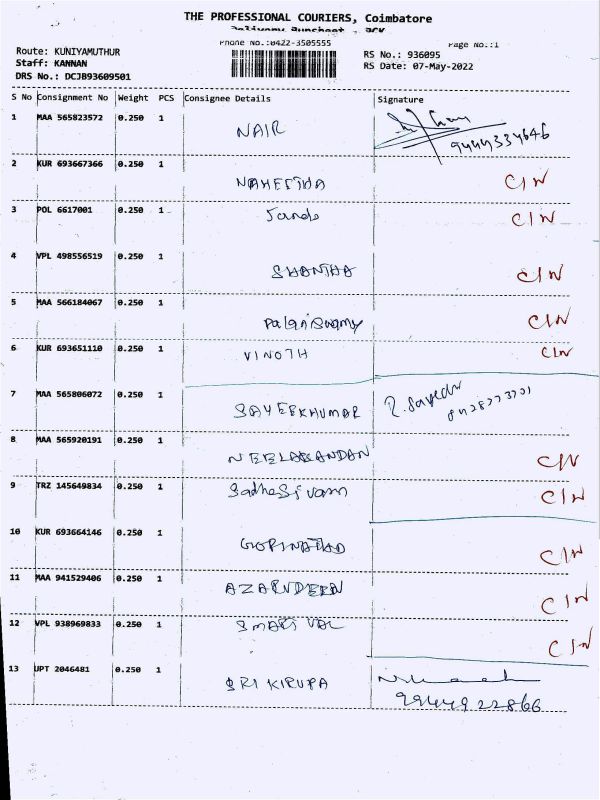 THE PROFESSIONAL COURIERS, Coimbatore
Delivery Runsheet - DCV
Phone No.:0422-3505555 Page No.:1
Route: KUNIYAMUTHUR RS No.: 936095
Staff: KANNAN RS Date: 07-May-2022
DRS No.: DCJB93609501
S No Consignment No Weight PCS Consignee Details Signature
1 MAA 565823572 0.250 1 NAIR
9444334646
2 KUR 693667366 0.250 1 C/N
3 POL 6617001 0.250 1 C/N
4 VPL 498556519 0.250 1 SHANTHA C/N
5 MAA 566184067 0.250 1 Palaniswamy C/N
6 KUR 693651110 0.250 1 VINOTH C/N
7 MAA 565806072 0.250 1 SAYEEKHUMAR
8 MAA 565920191 0.250 1 NEELAKANDAN C/N
9 TRZ 145649834 0.250 1 Sadhasivam C/N
10 KUR 693664146 0.250 1 GOPINATHAD C/N
11 MAA 941529406 0.250 1 AZARUDEEN C/N
12 VPL 938969833 0.250 1 C/N
13 UPT 2046481 0.250 1 SRI KIRUPA
9944922866